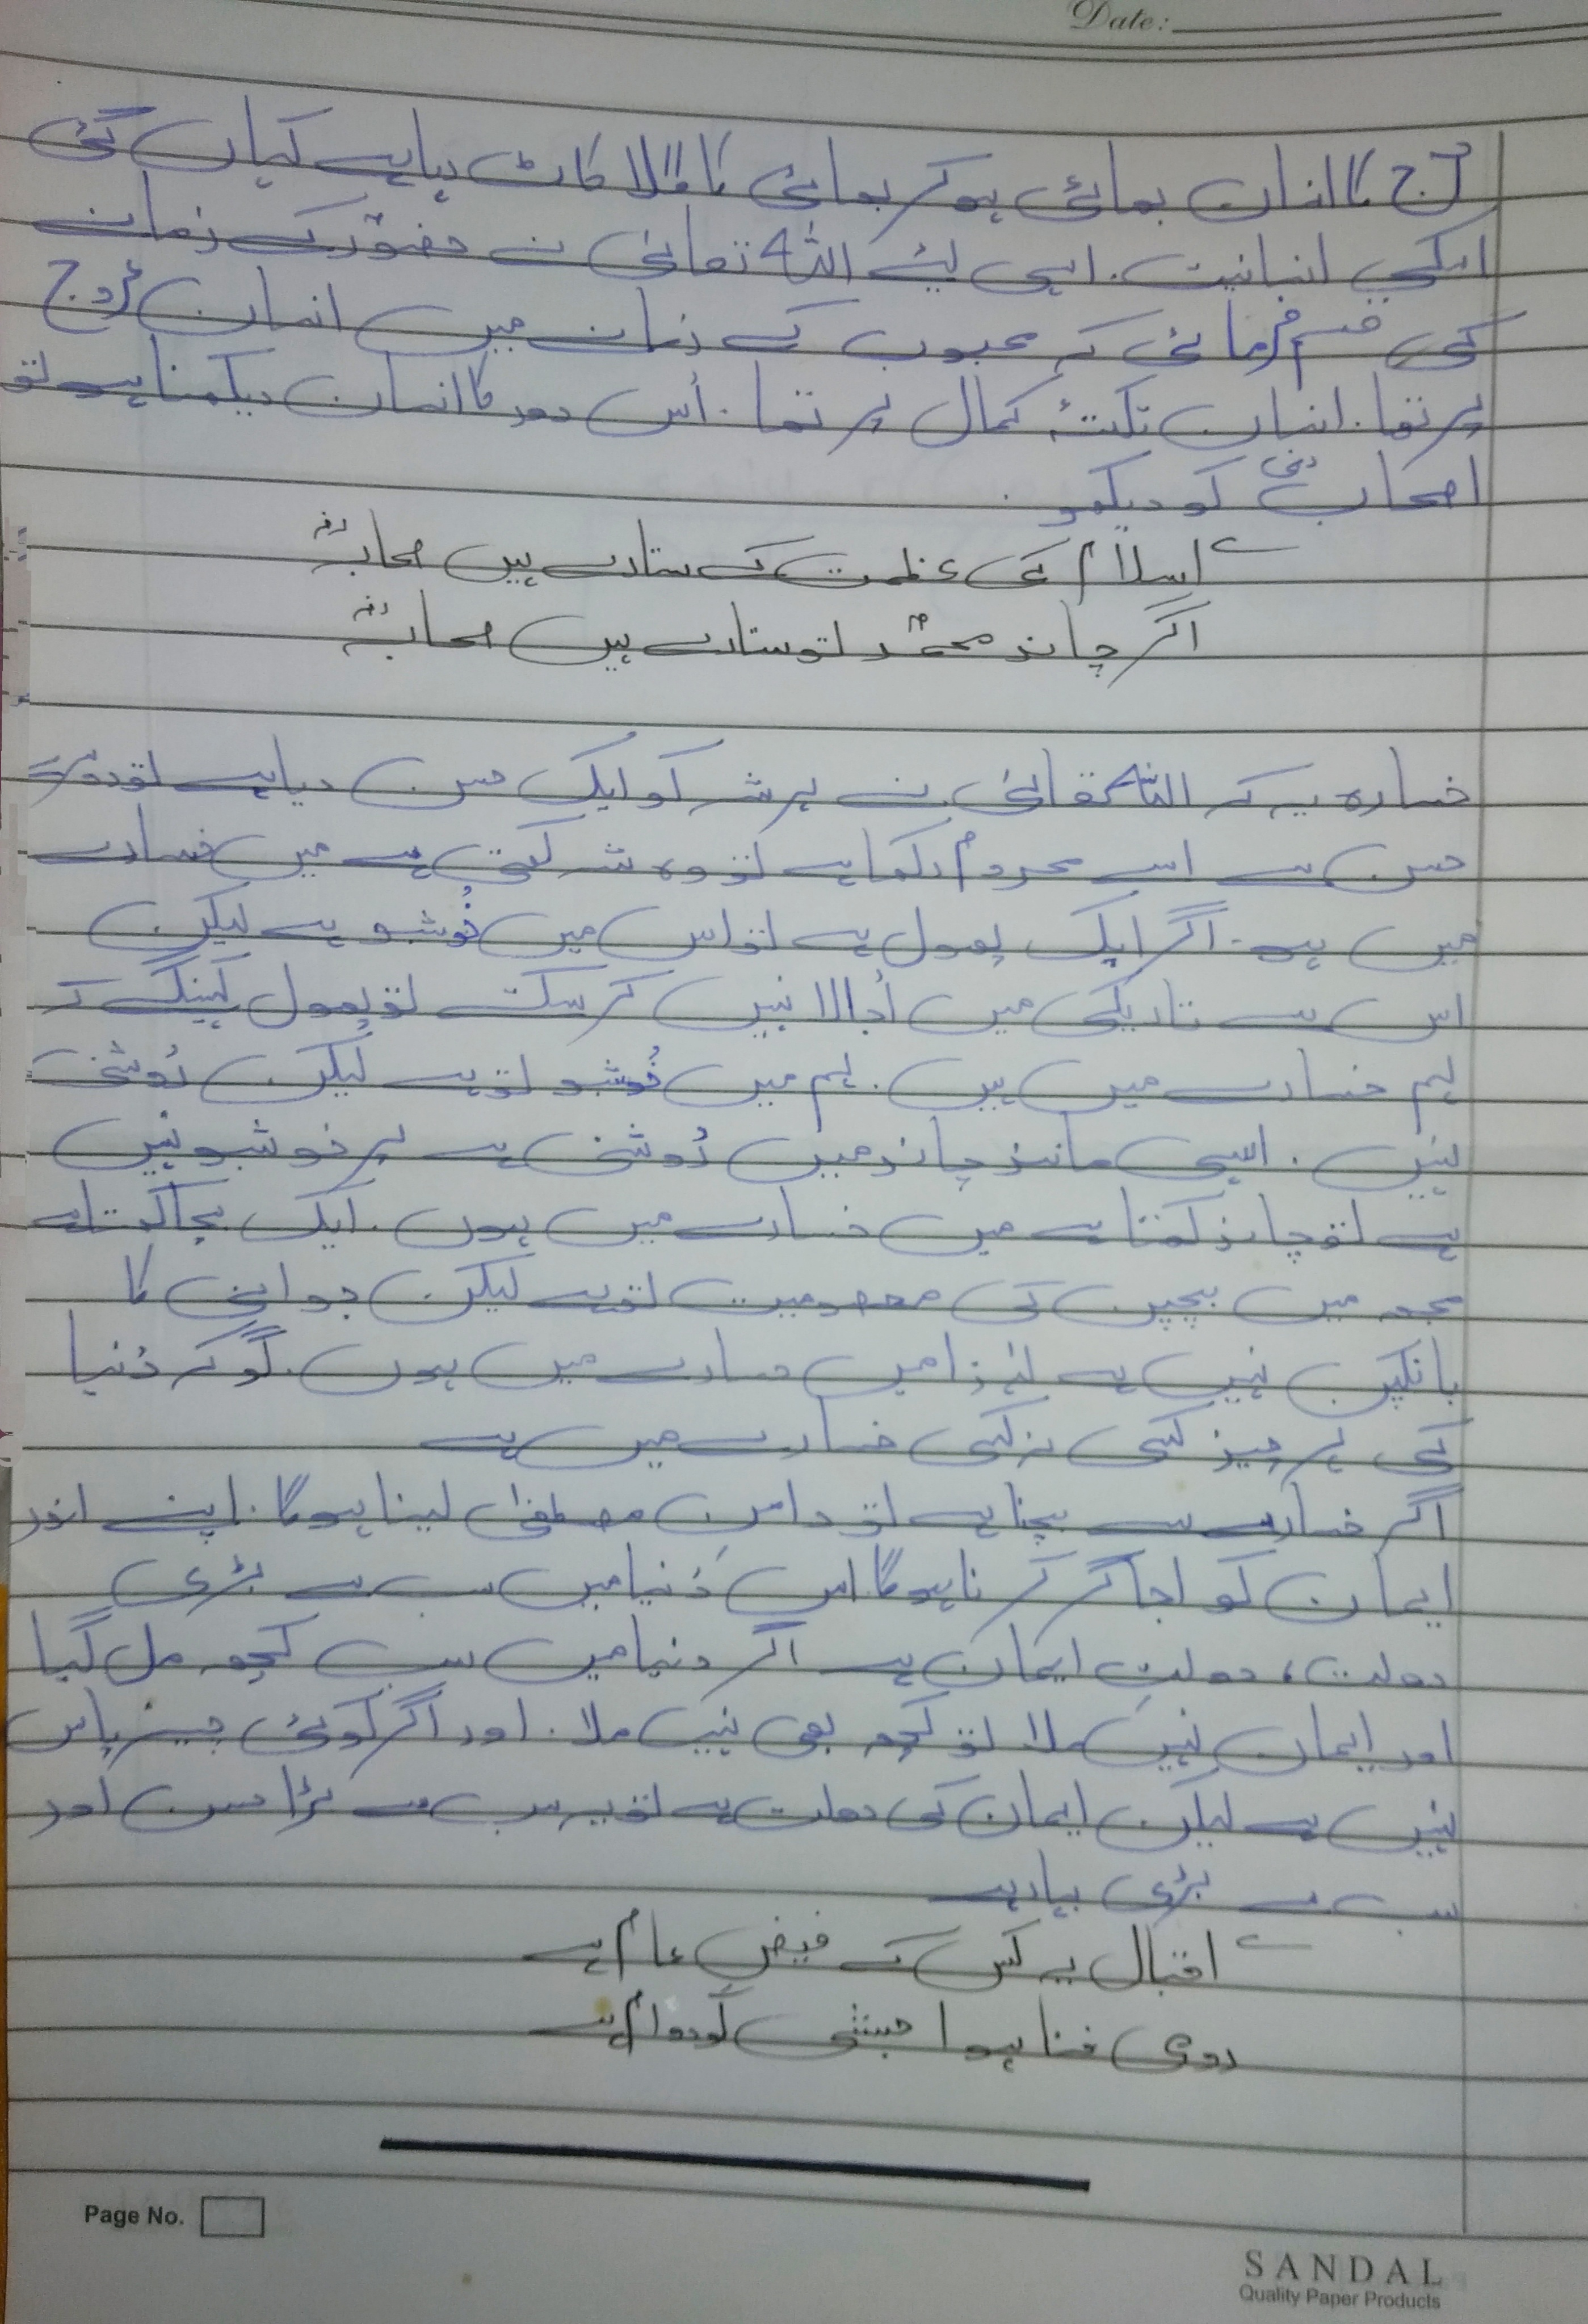 Date:
آج کا انسان بھائی ہوکر بھائی کا گلا کاٹ رہا ہے کہاں گئی
اسکی انسانیت. اسی لیئے اللہ تعالیٰ نے حضورؐ کے زمانے
کی قسم فرمائی کہ محبوب کے زمانے میں انسان عروج
پر تھا. انسان نکتۂ کمال پر تھا. اُس دور کا انسان دیکھنا ہے تو
اصحاب نبیؐ کو دیکھو.
؎ اسلام کی عظمت کے ستارے ہیں صحابہؓ
اگر چاند محمدؐ تو ستارے ہیں صحابہؓ
خسارہ یہ کہ اللہ تعالیٰ نے ہر شہ کو ایک حسن دیا ہے تو دوسرے
حسن سے اسے محروم رکھا ہے تو وہ شہ کہتی ہے میں خسارے
میں ہو. اگر ایک پھول ہے تو اس میں خُوشبو ہے لیکن
اس سے تاریکی میں اُجالا نہیں کر سکتے تو پھول کہینگے کہ
ہم خسارے میں ہیں. ہم میں خُوشبو تو ہے لیکن رُوشنی
نہیں. اسی مانند چاند میں رُوشنی ہے پر خوشبو نہیں
ہے تو چاند کہتا ہے میں خسارے میں ہوں. ایک بچا کہتا ہے
مجھ میں بچپن کی معصومیت تو ہے لیکن جوانی کا
بانکپن نہیں ہے لہٰذا میں خسارے میں ہوں. گو کہ دُنیا
کی ہر چیز کسی نہ کسی خسارے میں ہے
اگر خسارے سے بچنا ہے تو دامن مصطفیٰ لینا ہوگا. اپنے اندر
ایمان کو اجاگر کرنا ہوگا اس دُنیا میں سب سے بڑی
دولت، دولتِ ایمان ہے اگر دنیا میں سب کچھ مل گیا
اور ایمان نہیں ملا تو کچھ بھی نہیں ملا. اور اگر کوئی چیز پاس
نہیں ہے لیکن ایمان کی دولت ہے تو یہ سب سے بڑا حسن اور
سب سے بڑی بہار ہے
؎ اقبال یہ کس کے فیض عام ہے
رومی فنا ہوا حبشی کو دوام ہے
Page No.
SANDAL
Quality Paper Products